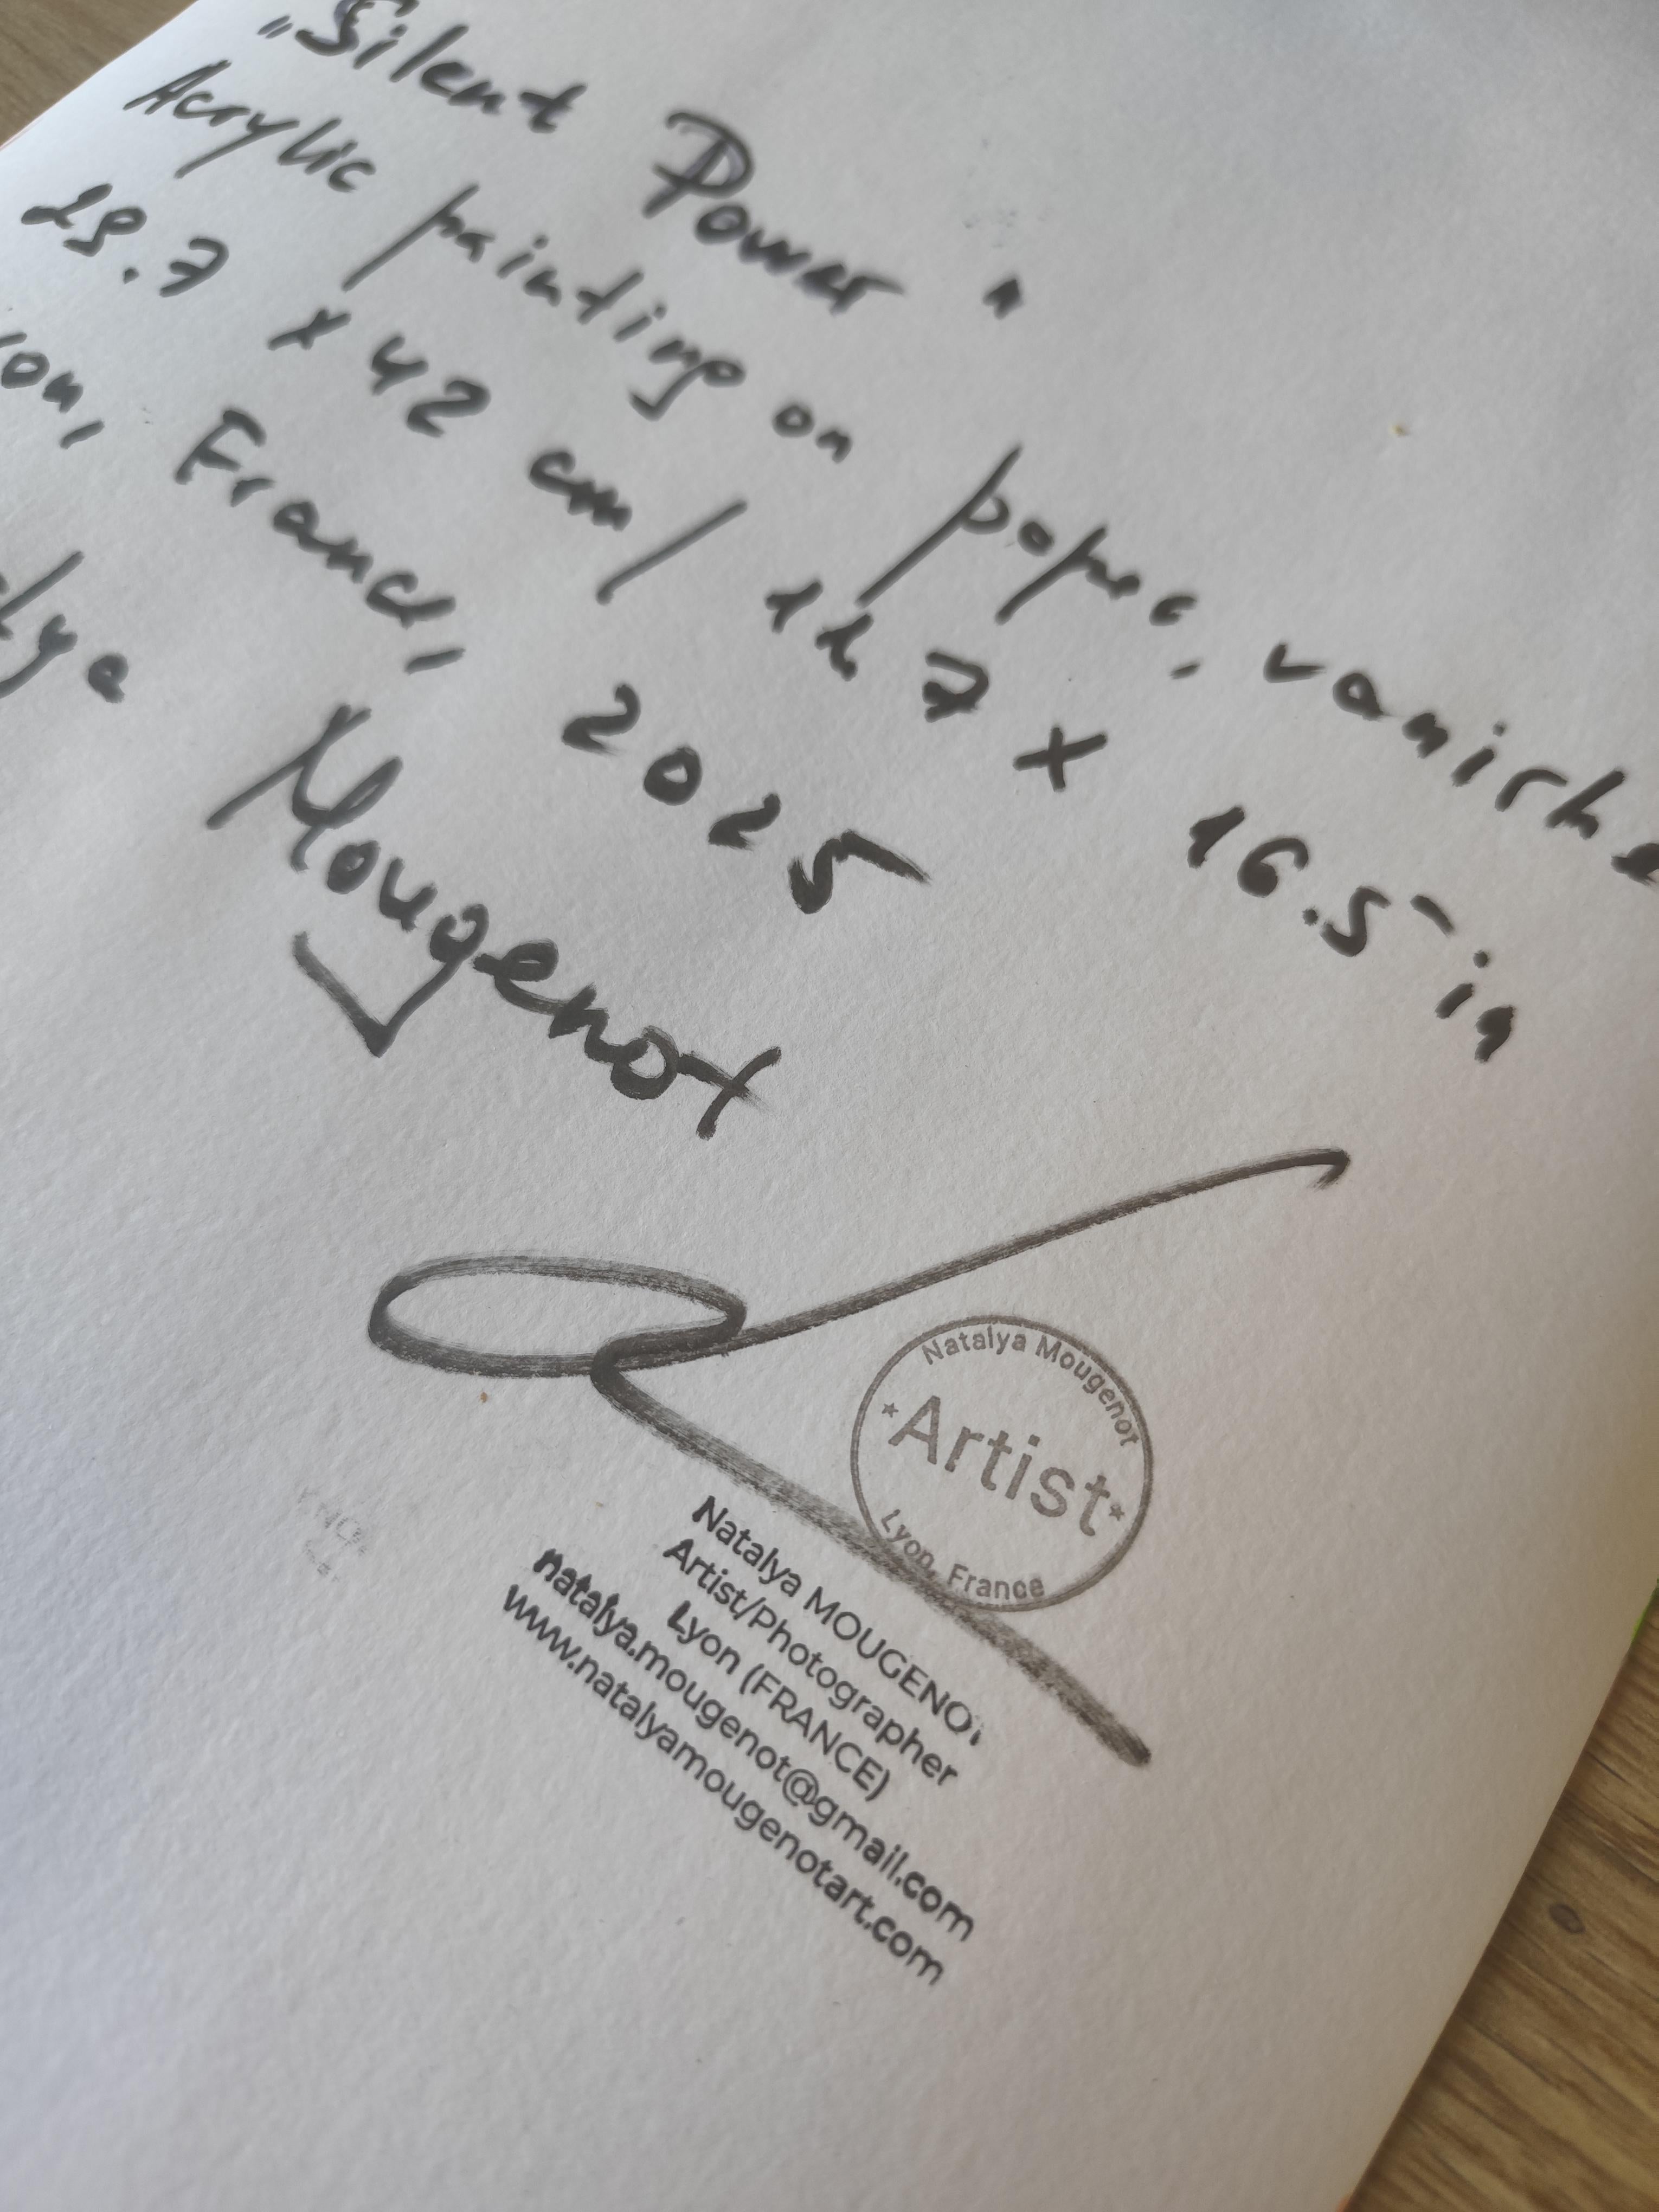 „Silent Power"
Acrylic painting on paper, vanishe
29.7 x 42 cm / 11.7 x 16.5 in
yon, France, 2025
alya Mougenot
Natalya Mougenot
*Artist*
Lyon, France
Natalya MOUGENOT
Artist/Photographer
Lyon (FRANCE)
natalya.mougenot@gmail.com
www.natalyamougenotart.com